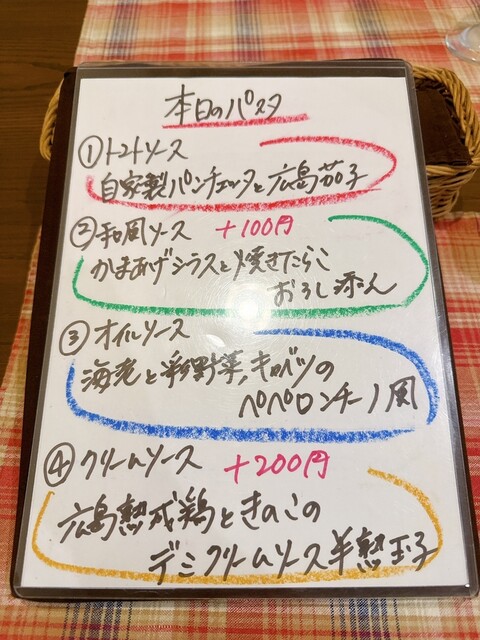 本日のパスタ
①トマトソース
自家製パンチェッタと広島茄子
②和風ソース +100円
かまあげシラスと焼きたらこ
おろし添え
③オイルソース
海老と彩野菜,キャベツの
ペペロンチーノ風
④クリームソース +200円
広島熟成鶏ときのこの
デミクリームソース半熟玉子